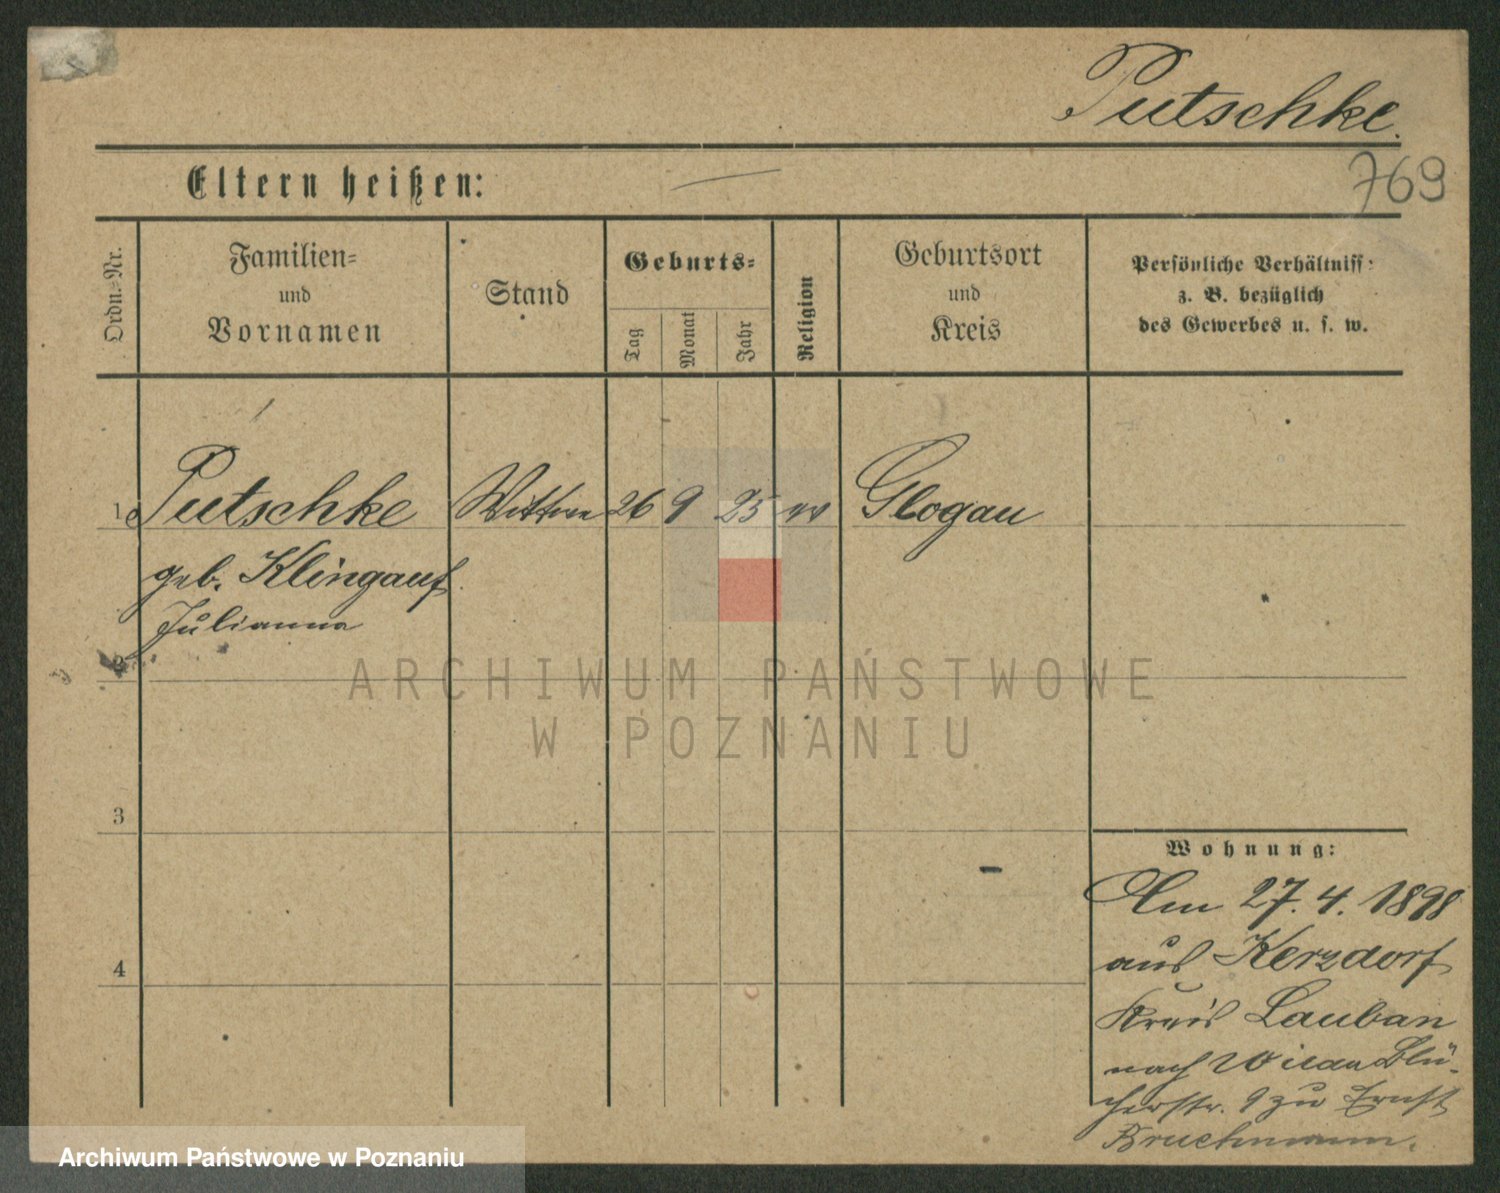 Putschke.
769
Eltern heißen:
Ordn.-Nr.
Familien-
und
Vornamen
Stand
Geburts-
Tag
Monat
Jahr
Religion
Geburtsort
und
Kreis
Persönliche Verhältniss:
z. B. bezüglich
des Gewerbes u. s. w.
1 Putschke Wittwe 26 9 25 ev Glogau
geb. Klingauf
Julianna
2
3
4
Wohnung:
Am 27. 4. 1898
aus Kerzdorf
Kreis Lauban
nach Wildau Blü-
cherstr. 9 zu Ernst
Bruchmann.
ARCHIWUM PAŃSTWOWE
W POZNANIU
Archiwum Państwowe w Poznaniu